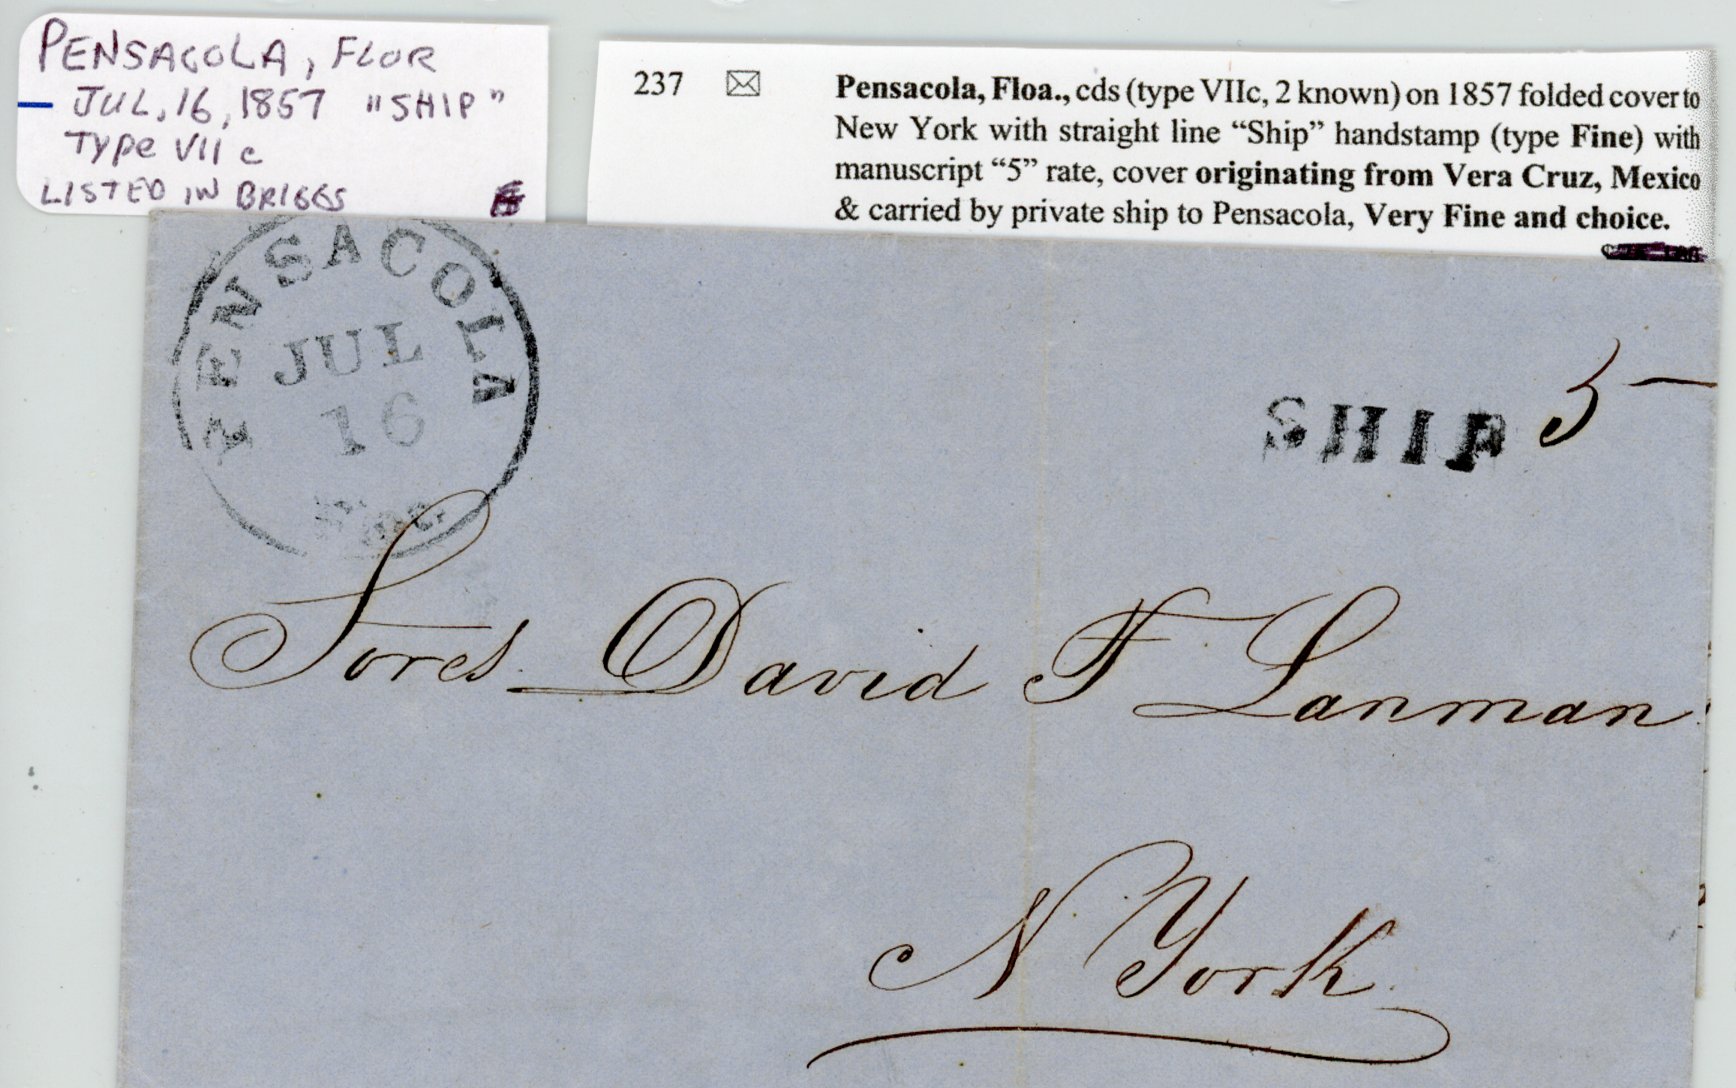 PENSACOLA, FLOR
JUL, 16, 1857 "SHIP"
Type VII c
LISTED IN BRIGGS
237
Pensacola, Floa., cds (type VIIc, 2 known) on 1857 folded cover to
New York with straight line “Ship” handstamp (type Fine) with
manuscript “5” rate, cover originating from Vera Cruz, Mexico
& carried by private ship to Pensacola, Very Fine and choice.
PENSACOLA
JUL
16
SHIP 5
Sores David F Lanman
N York